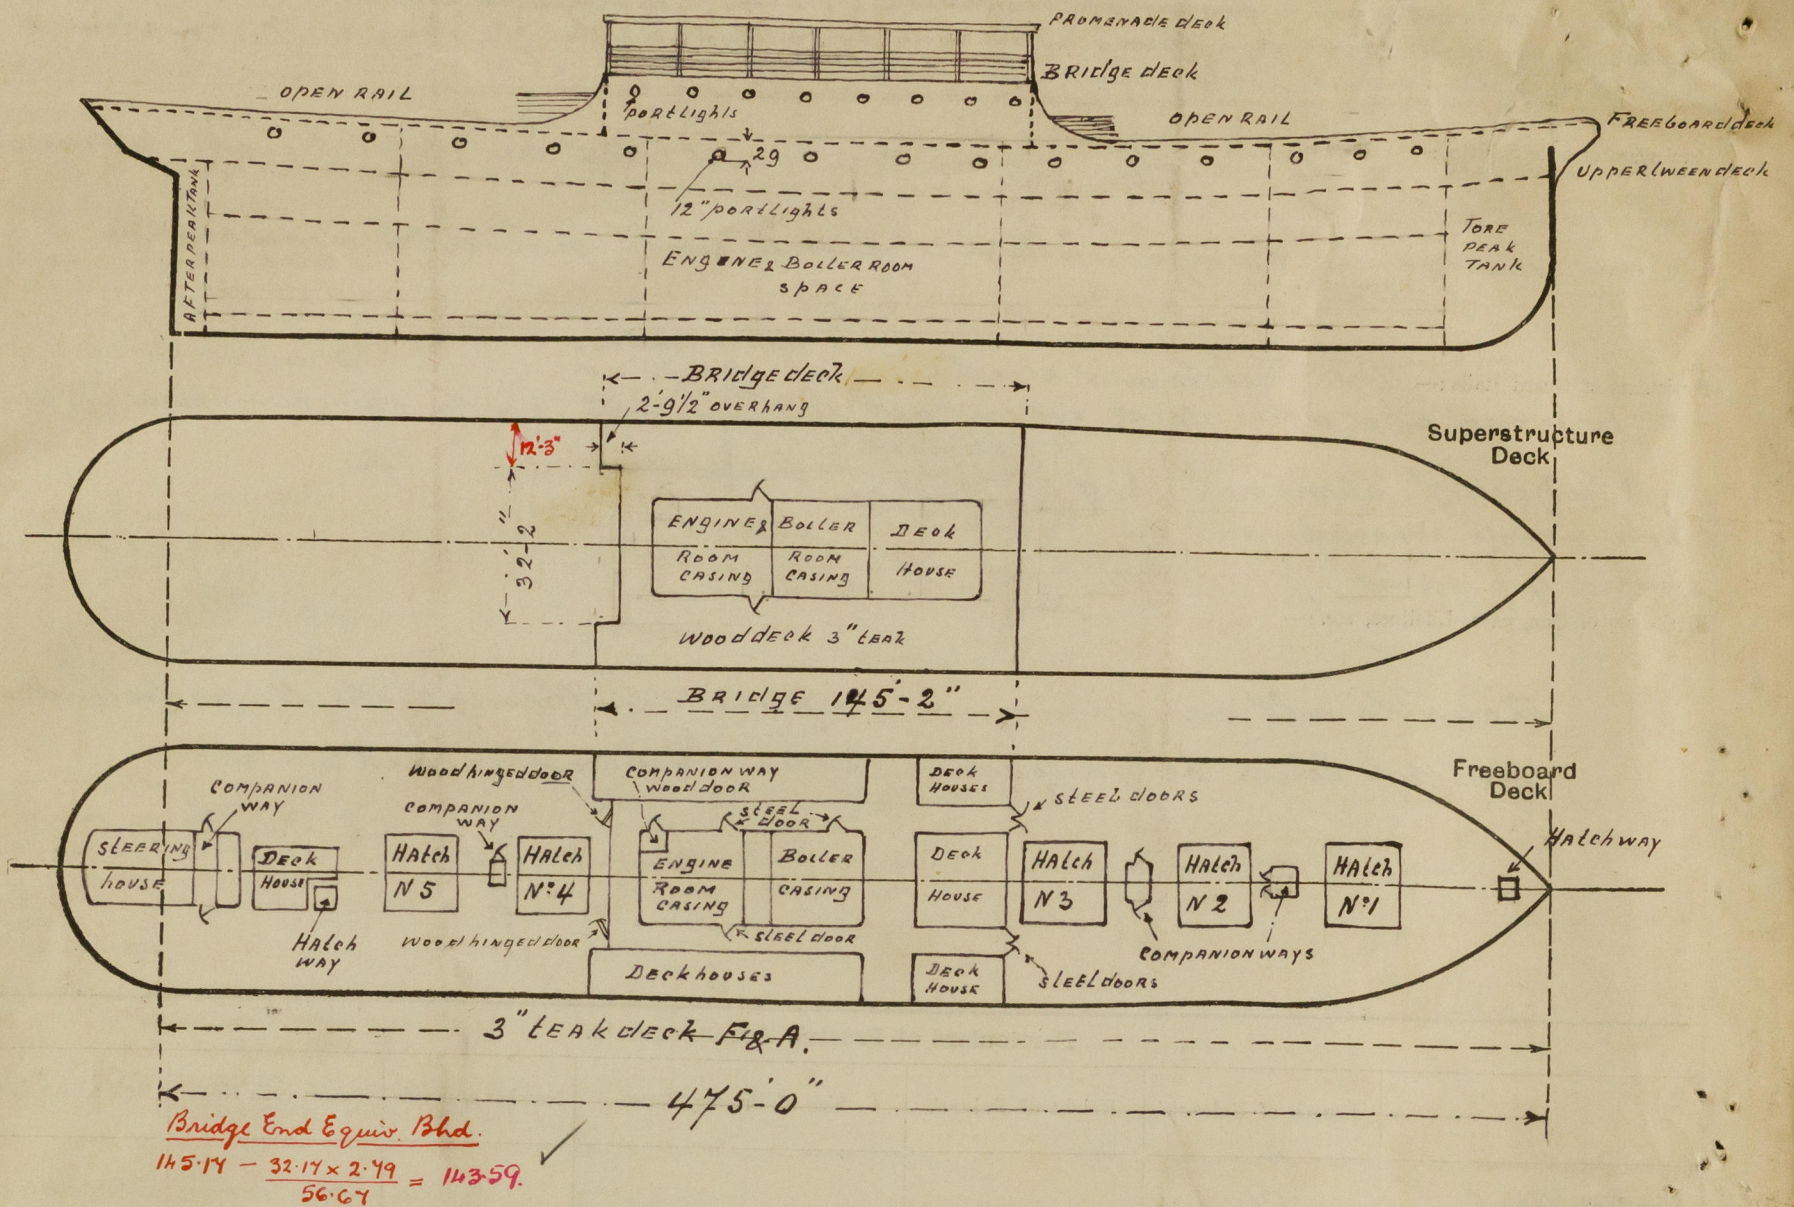 PROMENADE DECK
BRIDGE DECK
OPEN RAIL
PORTLIGHTS
OPEN RAIL
FREEBOARD DECK
29
UPPER TWEEN DECK
12" PORTLIGHTS
AFTER PEAK TANK
ENGINE & BOILER ROOM
SPACE
TORE
PEAK
TANK
BRIDGE DECK
2'-9 1/2" OVERHANG
12'-3"
Superstructure
Deck
32'-2"
ENGINE & BOILER DECK
ROOM ROOM HOUSE
CASING CASING
WOOD DECK 3" TEAK
BRIDGE 145'-2"
COMPANION
WAY
WOOD HINGED DOOR
COMPANION WAY
WOOD DOOR
DECK
HOUSES
STEEL DOORS
Freeboard
Deck
COMPANION
WAY
STEEL
DOOR
HATCHWAY
STEERING
HOUSE
DECK
HOUSE
HATCH
N 5
HATCH
Nº 4
ENGINE
ROOM
CASING
BOILER
CASING
DECK
HOUSE
HATCH
N 3
HATCH
N 2
HATCH
Nº 1
HATCH
WAY
WOOD HINGED DOOR
STEEL DOOR
COMPANION WAYS
DECKHOUSES
DECK
HOUSE
STEEL DOORS
3" TEAK DECK F & A.
475'-0"
Bridge End Equiv. Bhd.
145.17 - 32.17 x 2.79 = 143.59.
56.67